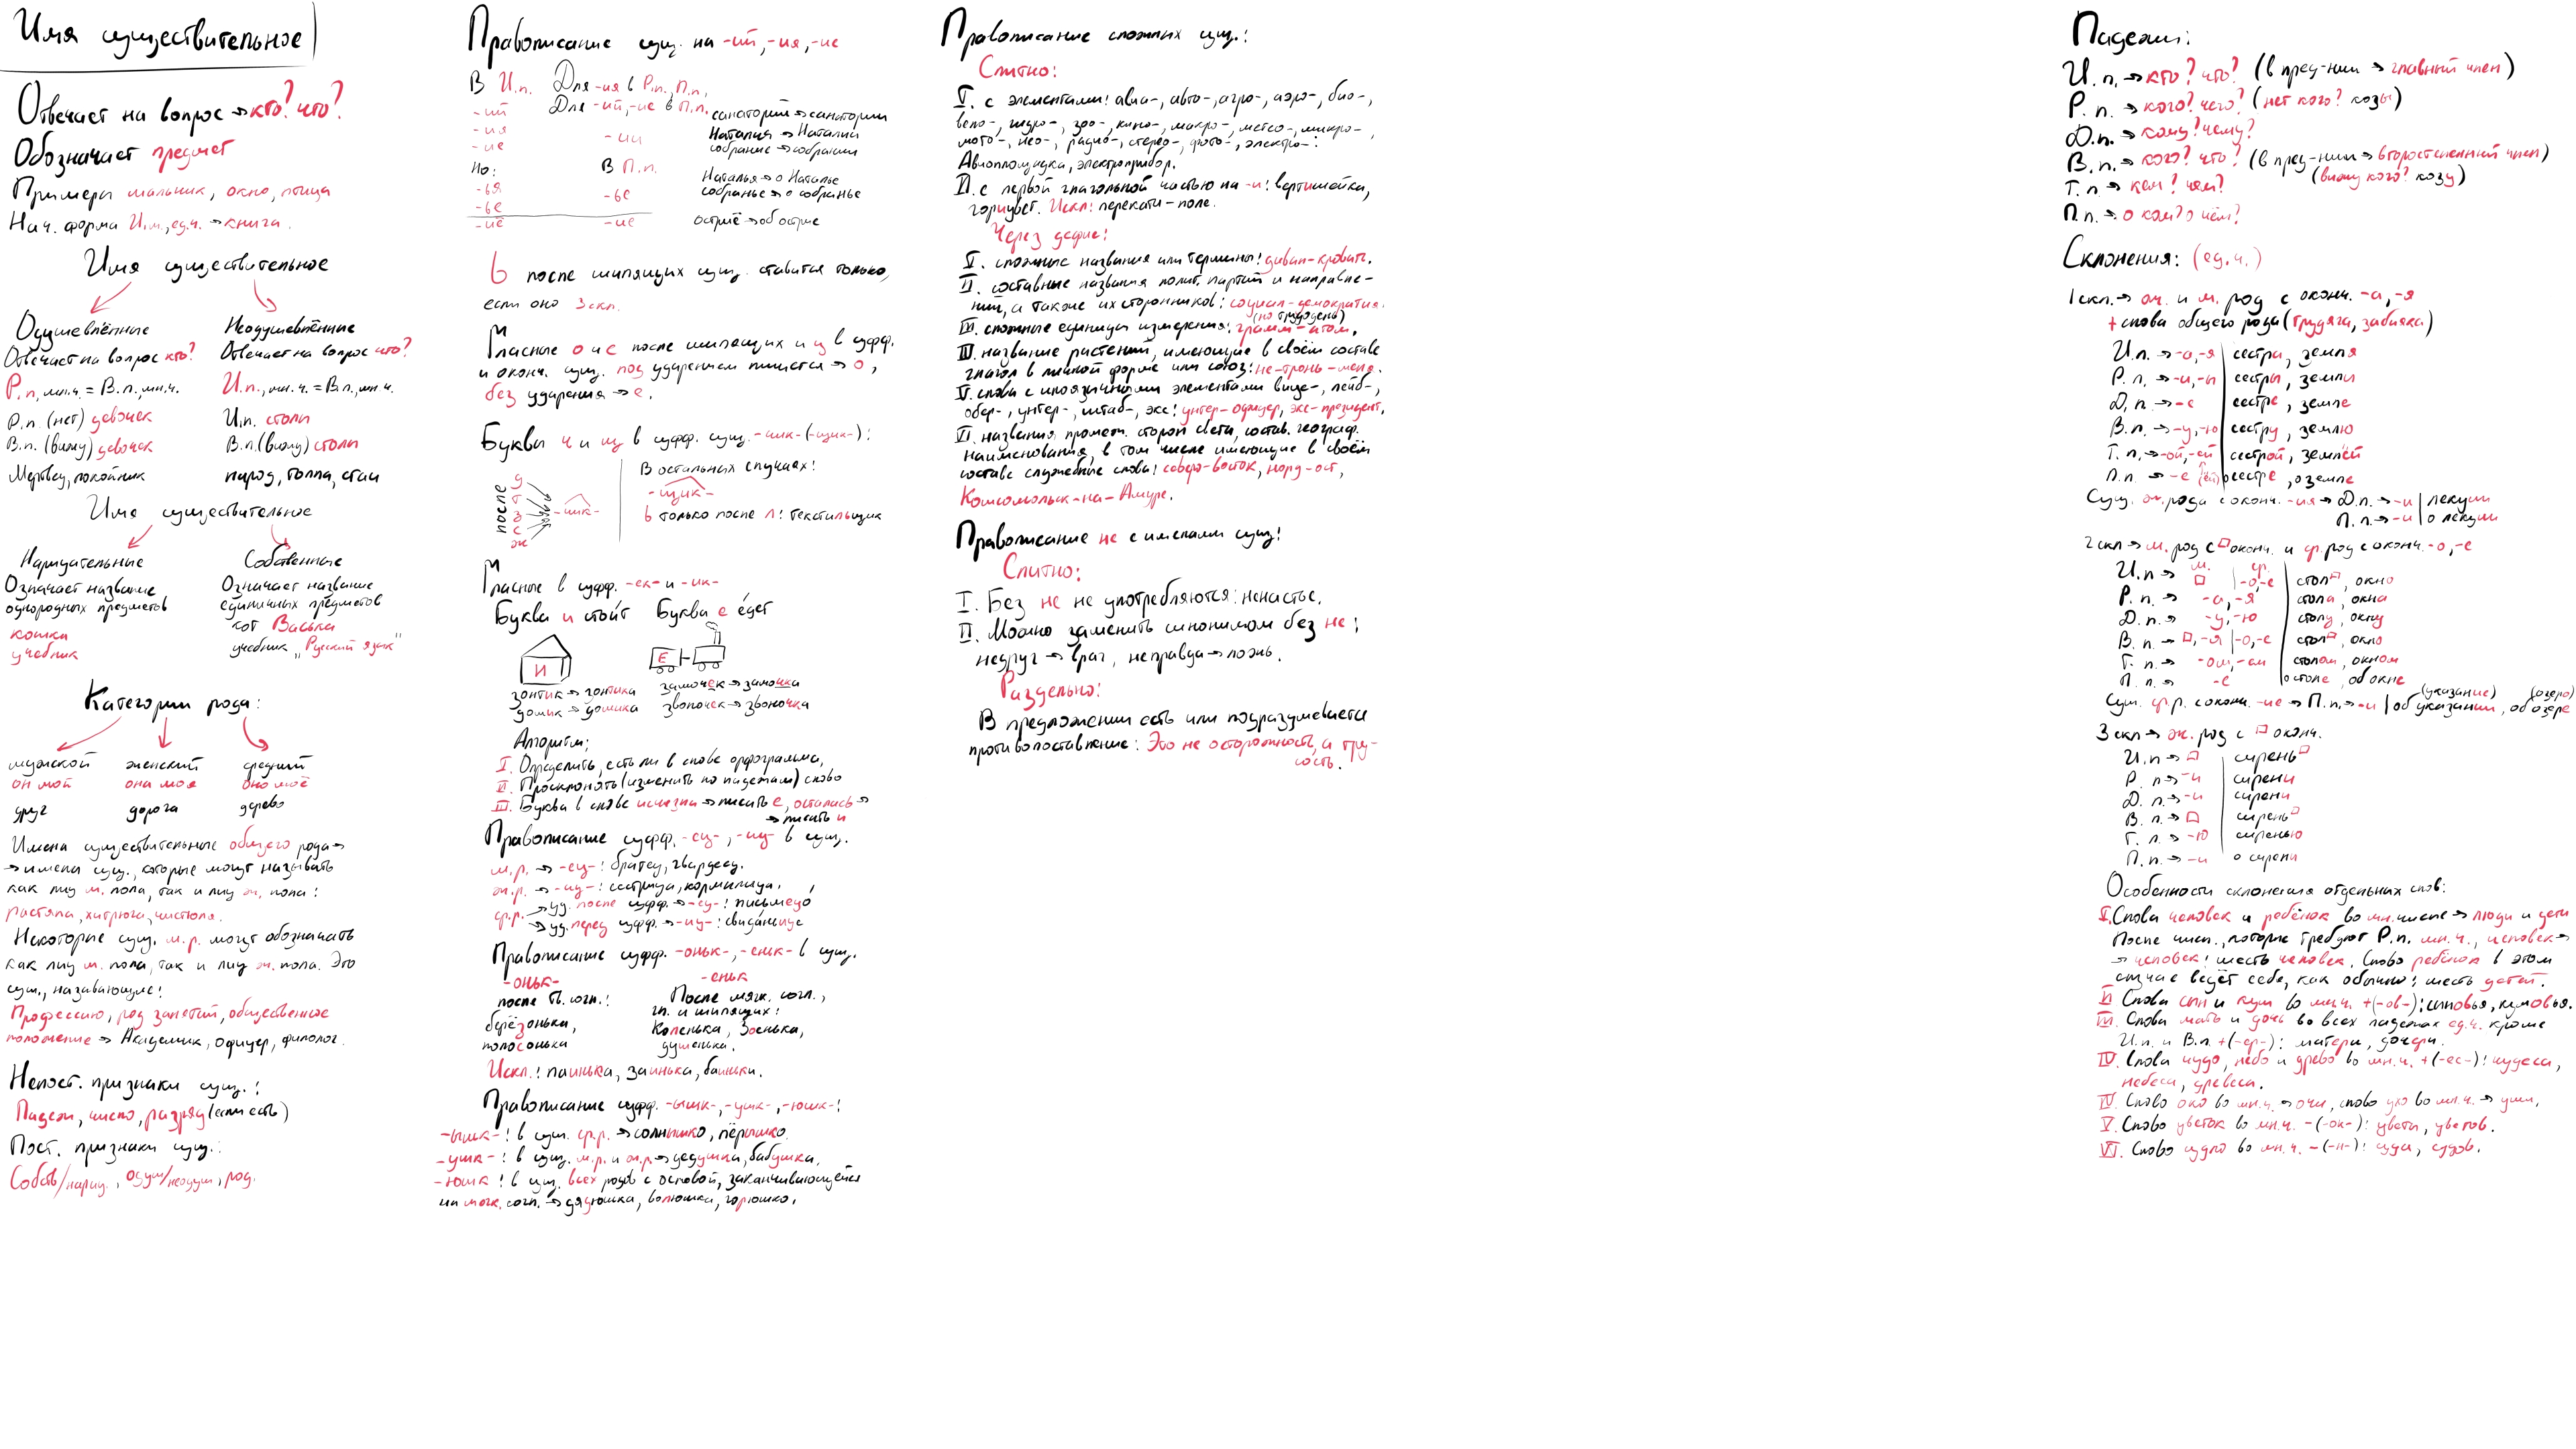 Имя существительное
Отвечает на вопрос → кто? что?
Обозначает предмет
Примеры мальчик, окно, птица
Нач. форма И.п., ед.ч. → книга.
Имя существительное
Одушевлённые
Отвечает на вопрос кто?
Р.п, мн.ч. = В.п., мн.ч.
Р.п. (нет) девочек
В.п. (вижу) девочек
Мертвец, покойник
Неодушевлённые
Отвечает на вопрос что?
И.п., мн.ч. = В.п., мн ч.
И.п. столы
В.п. (вижу) столы
народ, толпа, стаи
Имя существительное
Нарицательные
Означает название
однородных предметов
кошка
учебник
Собственные
Означает название
единичных предметов
кот Васька
учебник „Русский язык"
Категории рода:
мужской женский средний
он мой она моя оно моё
друг дорога дерево
Имена существительные общего рода →
→ имена сущ., которые могут называть
как лиц м. пола, так и лиц ж. пола:
растяпа, хитрюга, чистюля.
Некоторые сущ. м.р. могут обозначать
как лиц м. пола, так и лиц ж. пола. Это
сущ., называющие:
Профессию, род занятий, общественное
положение → Академик, офицер, филолог.
Непост. признаки сущ.:
Падеж, число, разряд (если есть)
Пост. признаки сущ.:
Собств/нариц., одуш/неодуш, род.
Правописание сущ. на -ий, -ия, -ие
В И.п. Для -ия в Р.п., П.п.,
Для -ий, -ие в П.п.
-ий санаторий → санатории
-ия -ии Наталия → Наталии
-ие собрание → собрании
Но: В П.п.
-ья Наталья → о Наталье
-ье -ье собранье → о собранье
-иё -ие остриё → об острие
Ь после шипящих сущ. ставится только,
если оно 3 скл.
Гласные о и е после шипящих и ц в суфф.
и оконч. сущ. под ударением пишется → о,
без ударения → е.
Буквы ч и щ в суфф. сущ. -чик- (-щик-):
после
д
т
з
с
ж
-чик-
В остальных случаях:
-щик-
ь только после л: текстильщик
Гласные в суфф. -ек- и -ик-
Буква и стои́т Буква е е́дет
И
Е
зонтик → зонтика замочек → замочка
домик → домика звоночек → звоночка
Алгоритм:
I. Определить, есть ли в слове орфограмма,
II. Просклонять (изменить по падежам) слово
III. Буква в слове исчезла → писать е, осталась →
→ писать и
Правописание суфф. -ец-, -иц- в сущ.
м.р. → -ец-: братец, гвардеец.
ж.р. → -иц-: сестрица, кормилица.
ср.р. → уд. после суфф. → -ец-: письмецо́
→ уд. перед суфф. → -иц-: свида́ньице
Правописание суфф. -оньк-, -еньк- в сущ.
-оньк-
после тв. согл.:
берёзонька,
полосонька
-еньк
После мягк. согл.,
гл. и шипящих:
Коленька, Зоенька,
душенька.
Искл.: паинька, заинька, баиньки.
Правописание суфф. -ышк-, -ушк-, -юшк-:
-ышк-: в сущ. ср.р. → солнышко, пёрышко.
-ушк-: в сущ. м.р. и ж.р → дедушка, бабушка.
-юшк: в сущ. всех родов с основой, заканчивающейся
на мягк. согл. → дядюшка, волюшка, горюшко.
Правописание сложных сущ.:
Слитно:
I. с элементами: авиа-, авто-, агро-, аэро-, био-,
вело-, гидро-, зоо-, кино-, макро-, метео-, микро-,
мото-, нео-, радио-, стерео-, фото-, электро-:
Авиаплощадка, электроприбор.
II. с первой глагольной частью на -и: вертишейка,
горицвет. Искл: перекати-поле.
Через дефис:
I. сложные названия или термины: диван-кровать.
II. составные названия полит. партий и направле-
ний, а также их сторонников: социал-демократия.
(но трудодень)
III. сложные единицы измерения: грамм-атом,
IV. название растений, имеющие в своём составе
глагол в личной форме или союз: не-тронь-меня.
V. слова с иноязычными элементами вице-, лейб-,
обер-, унтер-, штаб-, экс: унтер-офицер, экс-президент.
VI. названия промеж. сторон света, состав. географ.
наименования, в том числе имеющие в своём
составе служебные слова: северо-восток, норд-ост,
Комсомольск-на-Амуре.
Правописание не с именами сущ:
Слитно:
I. Без не не употребляются: ненастье.
II. Можно заменить синонимом без не:
недруг → враг, неправда → ложь.
Раздельно:
В предложении есть или подразумевается
противопоставление: Это не осторожность, а тру-
сость.
Падежи:
И.п. → кто? что? (в пред-нии → главный член)
Р.п. → кого? чего? (нет кого? козы)
Д.п. → кому? чему?
В.п. → кого? что? (в пред-нии → второстепенный член)
(вижу кого? козу)
Т.п → кем? чем?
П.п. → о ком? о чём?
Склонения: (ед.ч.)
1 скл. → ж. и м. род с оконч. -а, -я
+ слова общего рода (трудяга, забияка)
И.п. → -а, -я сестра, земля
Р.п. → -ы, -и сестры, земли
Д.п. → -е сестре, земле
В.п. → -у, -ю сестру, землю
Т.п. → -ой, -ей сестрой, землёй
П.п. → -е о сестре, о земле
Сущ. ж. рода с оконч. -ия → Д.п. → -и лекции
П.п. → -и о лекции
2 скл → м. род с □ оконч. и ср. род с оконч. -о, -е
м. ср.
И.п → □ -о, -е стол□, окно
Р.п. → -а, -я стола, окна
Д.п. → -у, -ю столу, окну
В.п. → □, -я -о, -е стол□, окно
Т.п. → -ом, -ем столом, окном
П.п. → -е о столе, об окне
(указание) (озеро)
Сущ. ср.р. с оконч. -ие → П.п. → -и об указании, об озере
3 скл → ж. род с □ оконч.
И.п → □ сирень□
Р.п → -и сирени
Д.п. → -и сирени
В.п. → □ сирень□
Т.п. → -ю сиренью
П.п. → -и о сирени
Особенности склонения отдельных слов:
I. Слова человек и ребёнок во мн.числе → люди и дети
После числ., которые требуют Р.п. мн.ч., человек →
→ человек: шесть человек. Слово ребёнок в этом
случае ведёт себя, как обычно: шесть детей.
II Слова сын и кум во мн.ч. +(-ов-): сыновья, кумовья.
III. Слова мать и дочь во всех падежах ед.ч. кроме
И.п. и В.п. +(-ер-): матери, дочери.
IV. Слова чудо, небо и древо во мн.ч. +(-ес-): чудеса,
небеса, древеса.
IV. Слово око во мн.ч. → очи, слово ухо во мн.ч. → уши.
V. Слово цветок во мн.ч. -(-ок-): цветы, цветов.
VI. Слово судно во мн.ч. -(-н-): суда, судов.